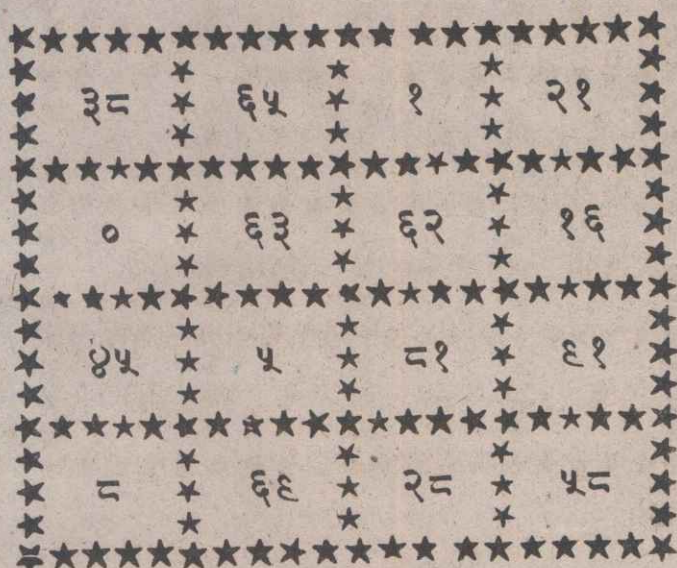 ३८ ६५ १ २१
० ६३ ६२ १६
४५ ५ ८१ ९१
८ ६९ २८ ५८